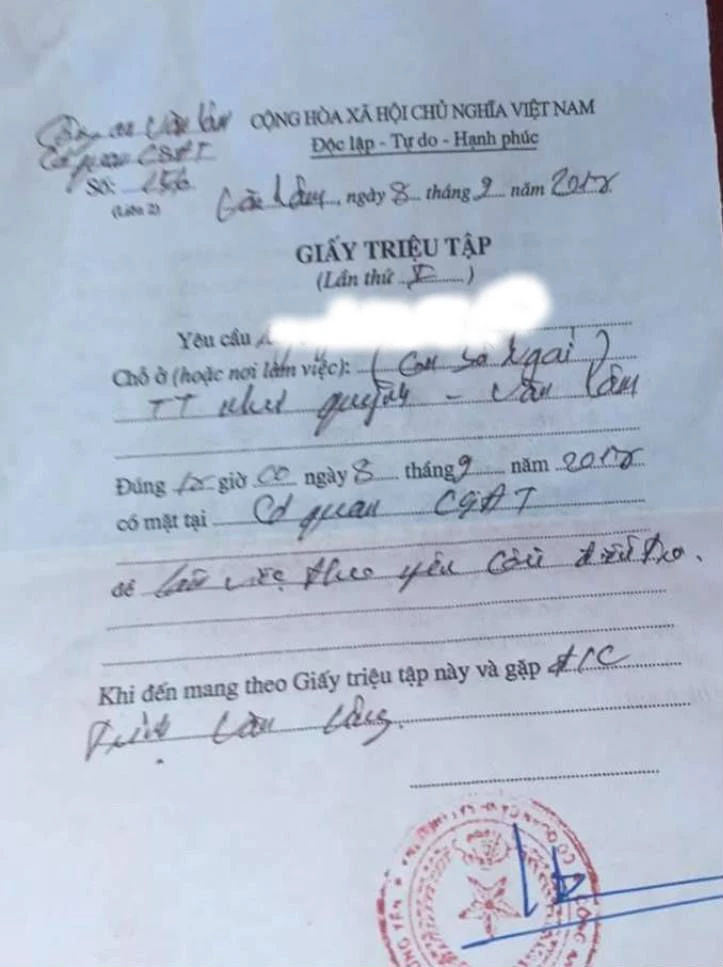 Công an Văn Lâm
Cơ quan CSĐT
Số: 156
(Liên 2)
CỘNG HÒA XÃ HỘI CHỦ NGHĨA VIỆT NAM
Độc lập - Tự do - Hạnh phúc
Văn Lâm, ngày 8 tháng 9 năm 2018
GIẤY TRIỆU TẬP
(Lần thứ I)
Yêu cầu
Chỗ ở (hoặc nơi làm việc): (Con bà Ngai)
TT Như Quỳnh - Văn Lâm
Đúng giờ 00 ngày 8 tháng 9 năm 2018
có mặt tại Cơ quan CSĐT
để làm việc theo yêu cầu điều tra.
Khi đến mang theo Giấy triệu tập này và gặp đ/c
Văn